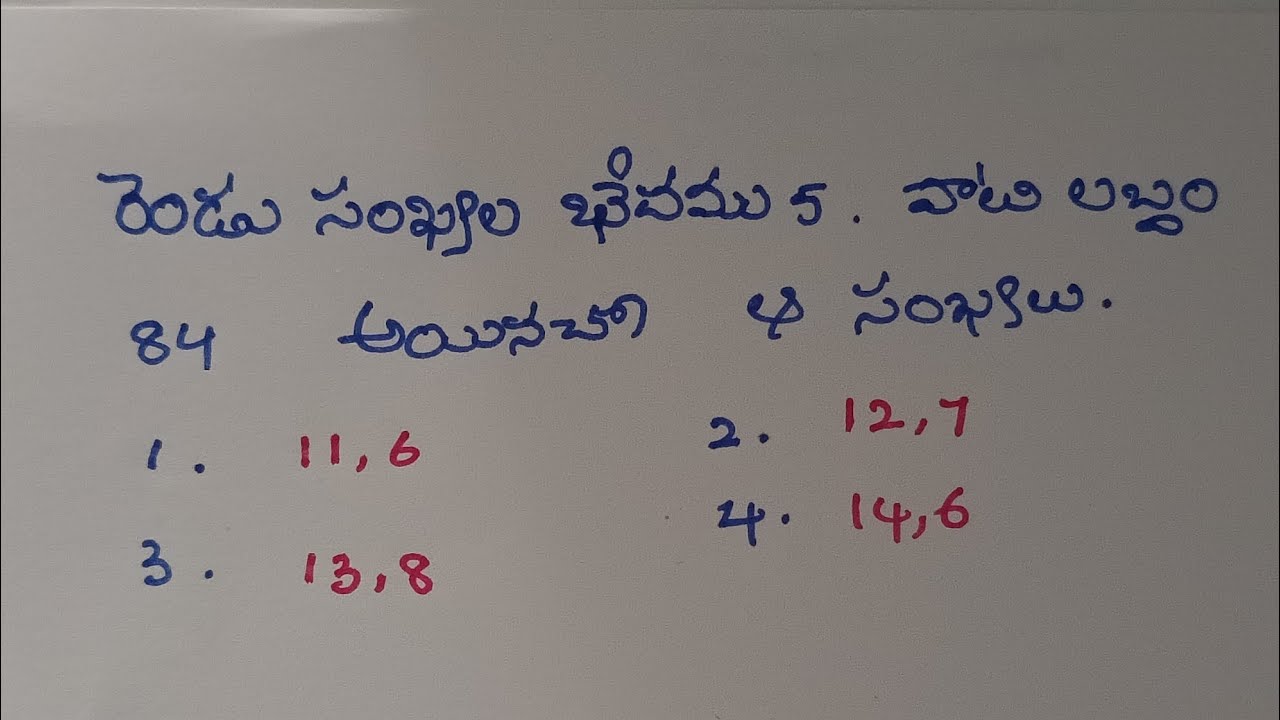 రెండు సంఖ్యల భేదము 5. వాటి లబ్దం
84 అయినచో ఆ సంఖ్యలు.
1. 11,6 2. 12,7
3. 13,8 4. 14,6